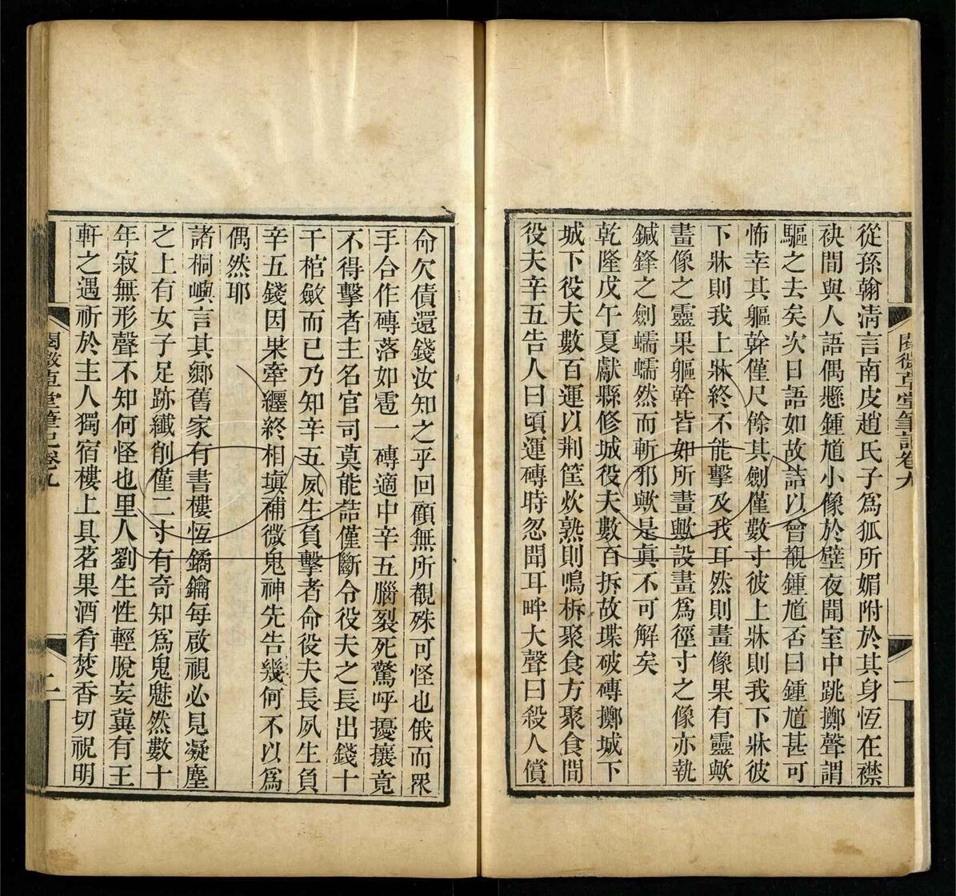 閱微草堂筆記卷九
一
從孫翰淸言南皮趙氏子爲狐所媚附於其身恆在襟
袂間與人語偶懸鍾馗小像於壁夜聞室中跳擲聲謂
驅之去矣次日語如故詰以曾覩鍾馗否曰鍾馗甚可
怖幸其軀幹僅尺餘其劍僅數寸彼上牀則我下牀彼
下牀則我上牀終不能擊及我耳然則畫像果有靈歟
畫像之靈果軀幹皆如所畫歟設畫爲徑寸之像亦執
鍼鋒之劍蠕蠕然而斬邪歟是眞不可解矣
乾隆戊午夏獻縣修城役夫數百拆故堞破磚擲城下
城下役夫數百運以荆筐炊熟則鳴柝聚食方聚食間
役夫辛五告人曰頃運磚時忽聞耳畔大聲曰殺人償
命欠債還錢汝知之乎回顧無所覩殊可怪也俄而眾
手合作磚落如雹一磚適中辛五腦裂死驚呼擾攘竟
不得擊者主名官司莫能詰僅斷令役夫之長出錢十
千棺斂而已乃知辛五夙生負擊者命役夫長夙生負
辛五錢因果牽纏終相塡補微鬼神先告幾何不以爲
偶然耶
諸桐嶼言其鄉舊家有書樓恆鐍鑰每啟視必見凝塵
之上有女子足跡纖削僅二寸有奇知爲鬼魅然數十
年寂無形聲不知何怪也里人劉生性輕脫妄冀有王
軒之遇祈於主人獨宿樓上具茗果酒肴焚香切祝明
閱微草堂筆記卷九
二